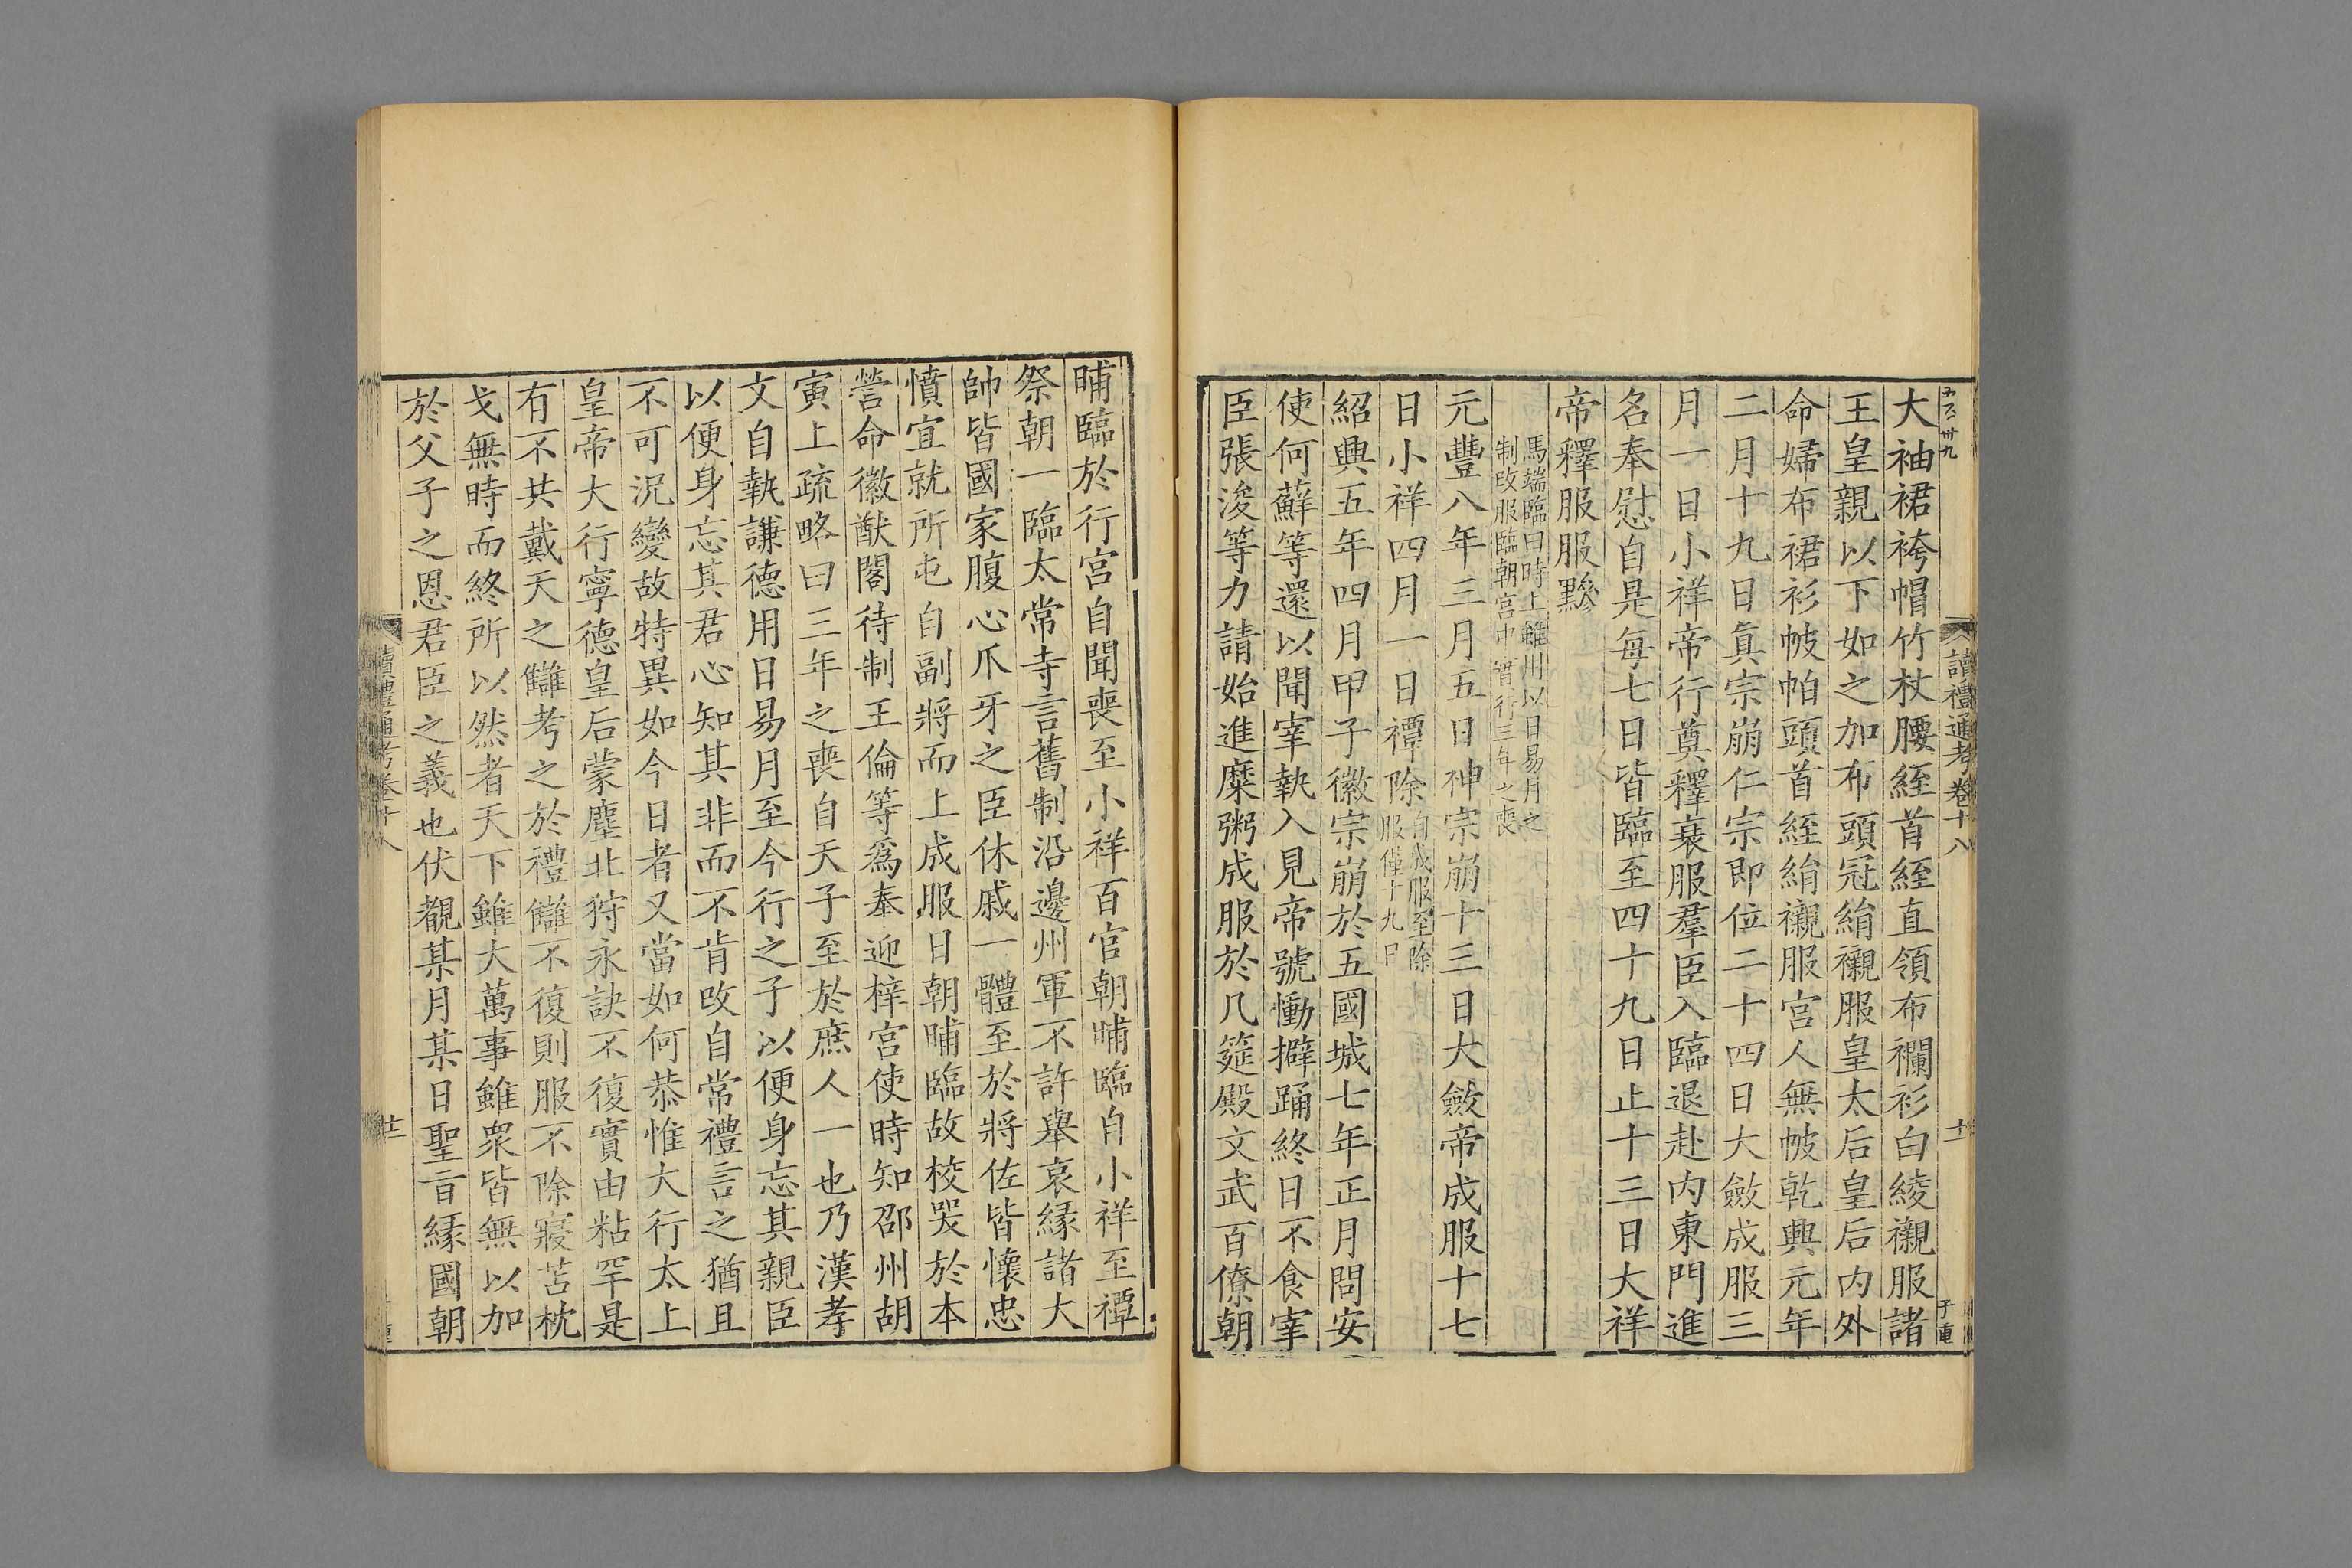 五六卅九
讀禮通考卷十八
十一
子重
大袖裙袴帽竹杖腰絰首絰直領布襴衫白綾襯服諸
王皇親以下如之加布頭冠絹襯服皇太后皇后內外
命婦布裙衫帔帕頭首絰絹襯服宮人無帔乾興元年
二月十九日眞宗崩仁宗即位二十四日大斂成服三
月一日小祥帝行奠釋衰服羣臣入臨退赴内東門進
名奉慰自是每七日皆臨至四十九日止十三日大祥
帝釋服服黲
馬端臨曰時上雖用以日易月之
制改服臨朝宮中實行三年之喪
元豐八年三月五日神宗崩十三日大斂帝成服十七
日小祥四月一日禫除自成服至除
服僅十九日
紹興五年四月甲子徽宗崩於五國城七年正月問安
使何蘚等還以聞宰執入見帝號慟擗踊終日不食宰
臣張浚等力請始進糜粥成服於几筵殿文武百僚朝
晡臨於行宮自聞喪至小祥百官朝晡臨自小祥至禫
祭朝一臨太常寺言舊制沿邊州軍不許舉哀緣諸大
帥皆國家腹心爪牙之臣休戚一體至於將佐皆懷忠
憤宜就所屯自副將而上成服日朝晡臨故校哭於本
營命徽猷閣待制王倫等爲奉迎梓宮使時知邵州胡
寅上疏略曰三年之喪自天子至於庶人一也乃漢孝
文自執謙德用日易月至今行之子以便身忘其親臣
以便身忘其君心知其非而不肯改自常禮言之猶且
不可況變故特異如今日者又當如何恭惟大行太上
皇帝大行寧德皇后蒙塵北狩永訣不復實由粘罕是
有不共戴天之讎考之於禮讎不復則服不除寢苫枕
戈無時而終所以然者天下雖大萬事雖衆皆無以加
於父子之恩君臣之義也伏覩某月某日聖旨緣國朝
讀禮通考卷十八